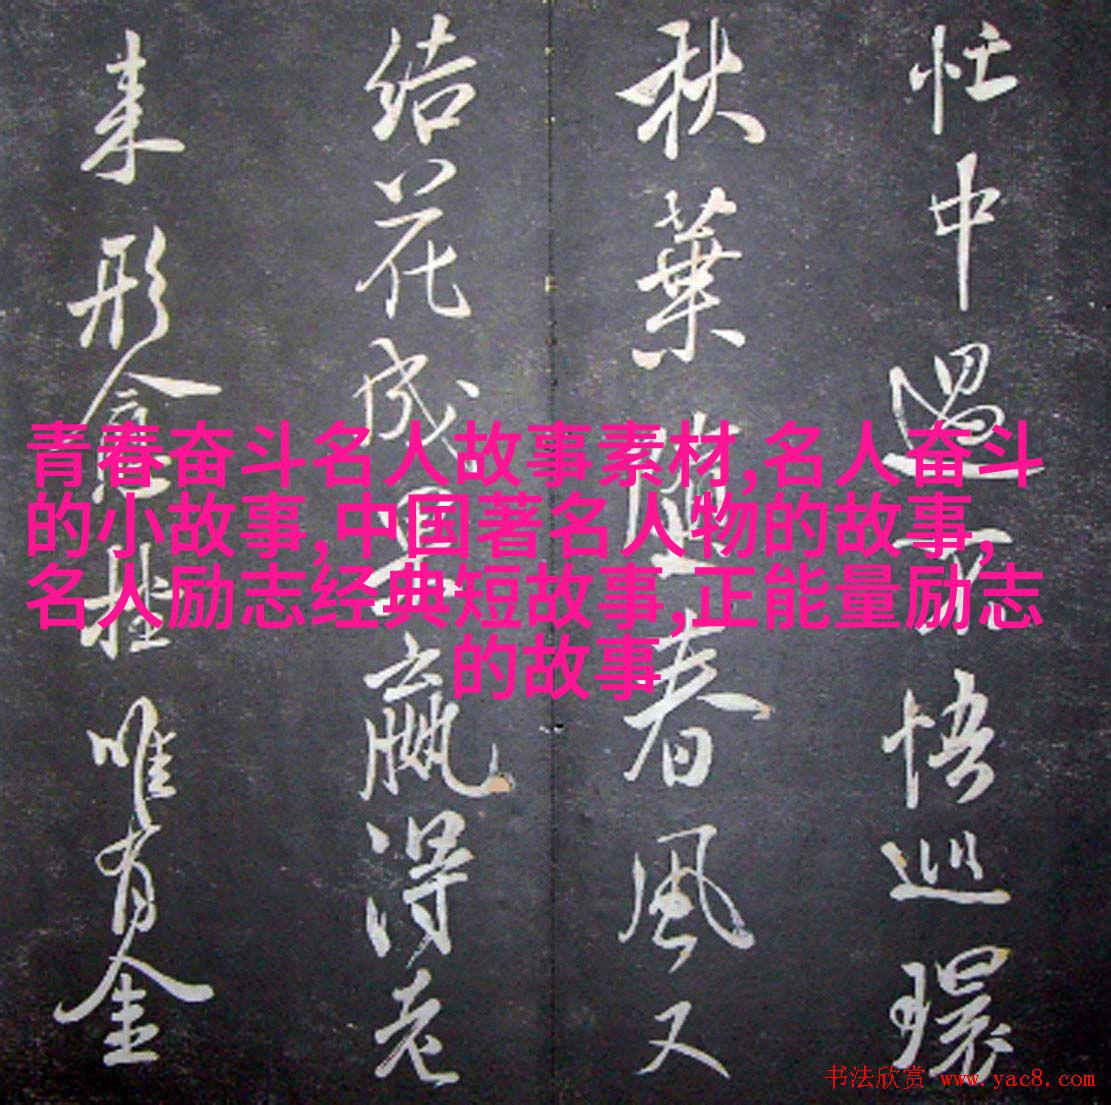 忙中過不悟巡環
秋葉春風又
结花成赢得老
来形唯有金
青春奋斗名人故事素材,名人奋斗
的小故事,中国著名人物的故事,
名人励志经典短故事,正能量励志
的故事
书法欣赏 www.yac8.com